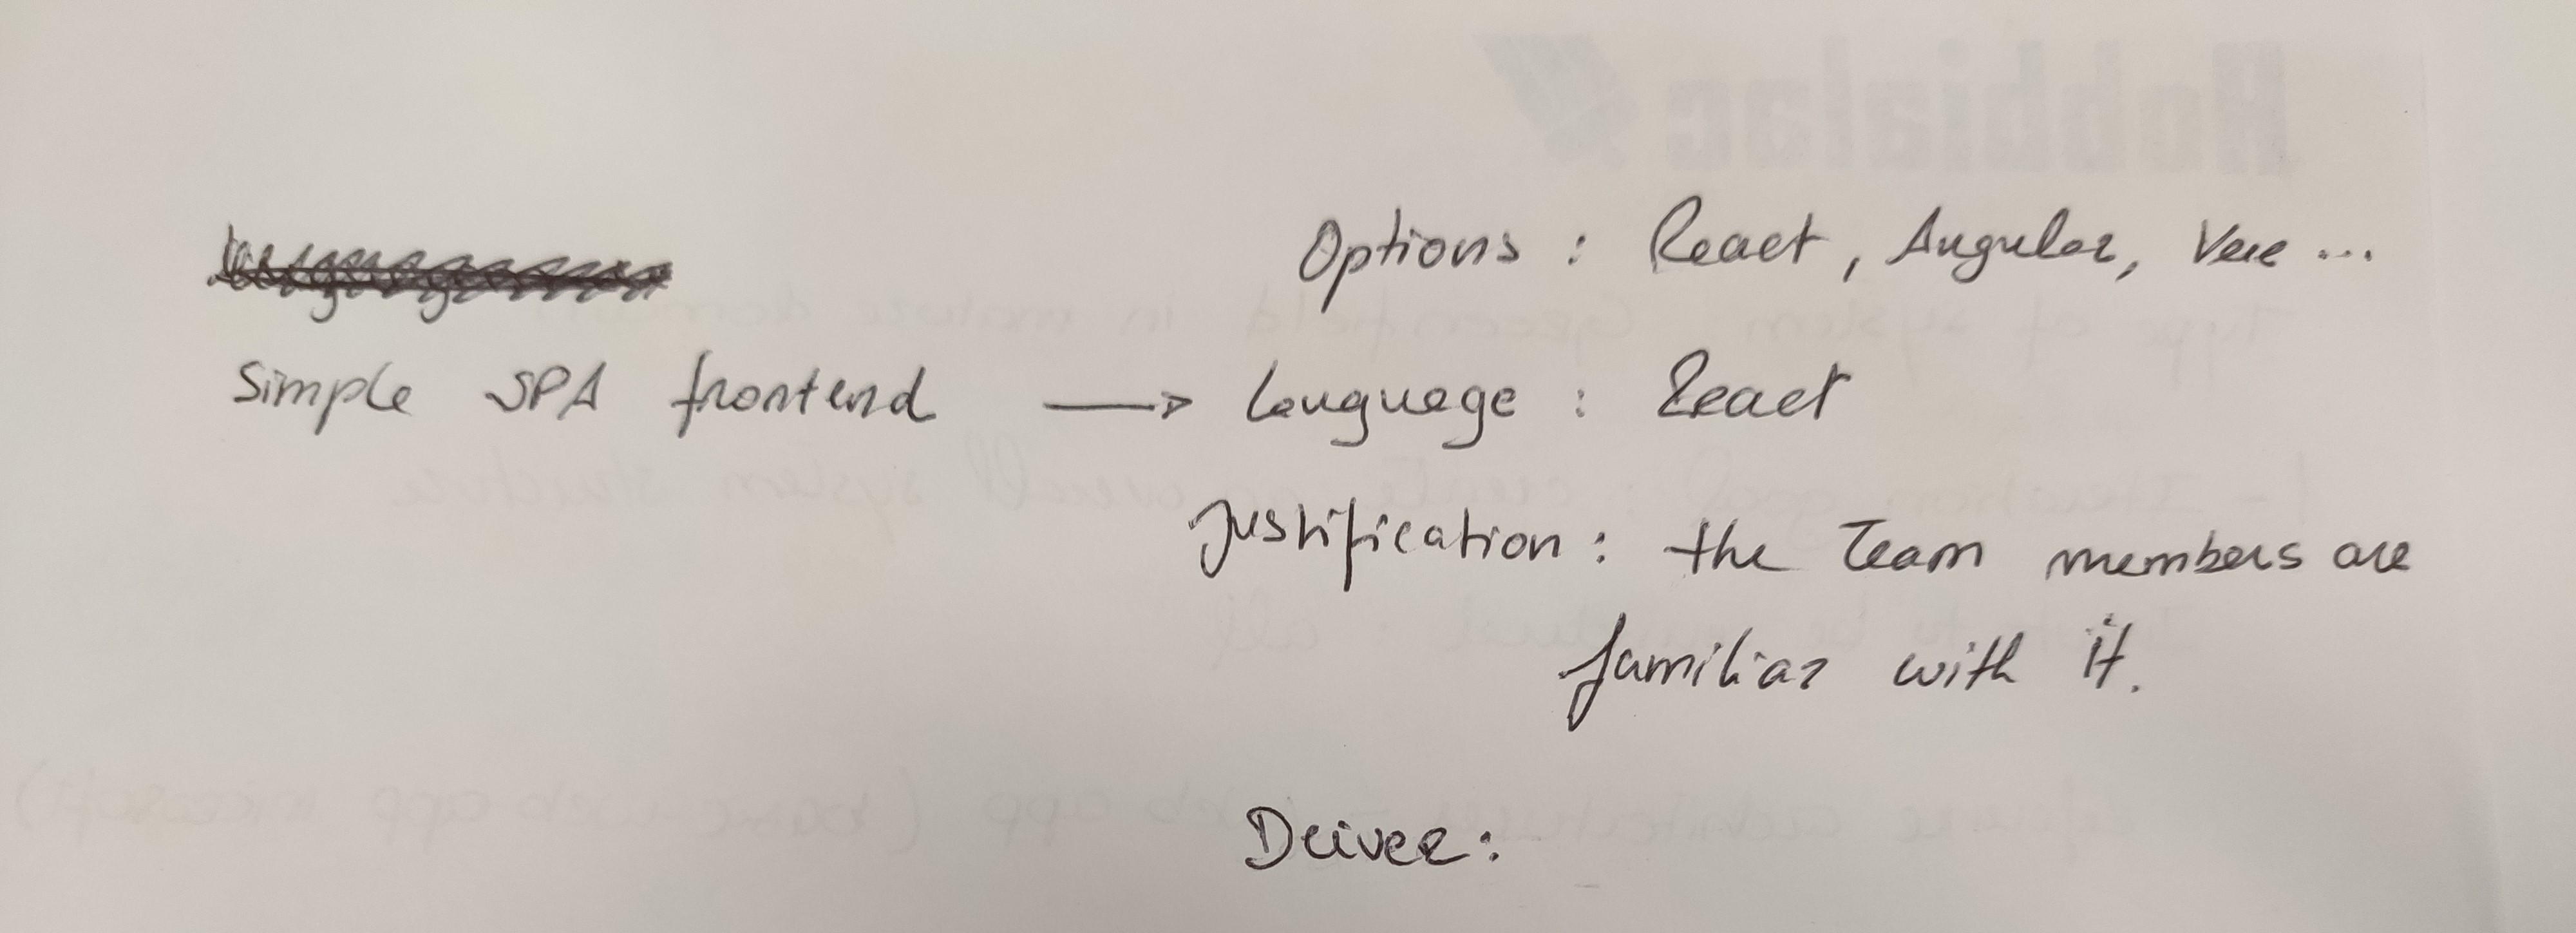 Options : React, Angular, Vue ...
Simple SPA frontend → Language : React
Justification : the Team members are
familiar with it.
Driver :